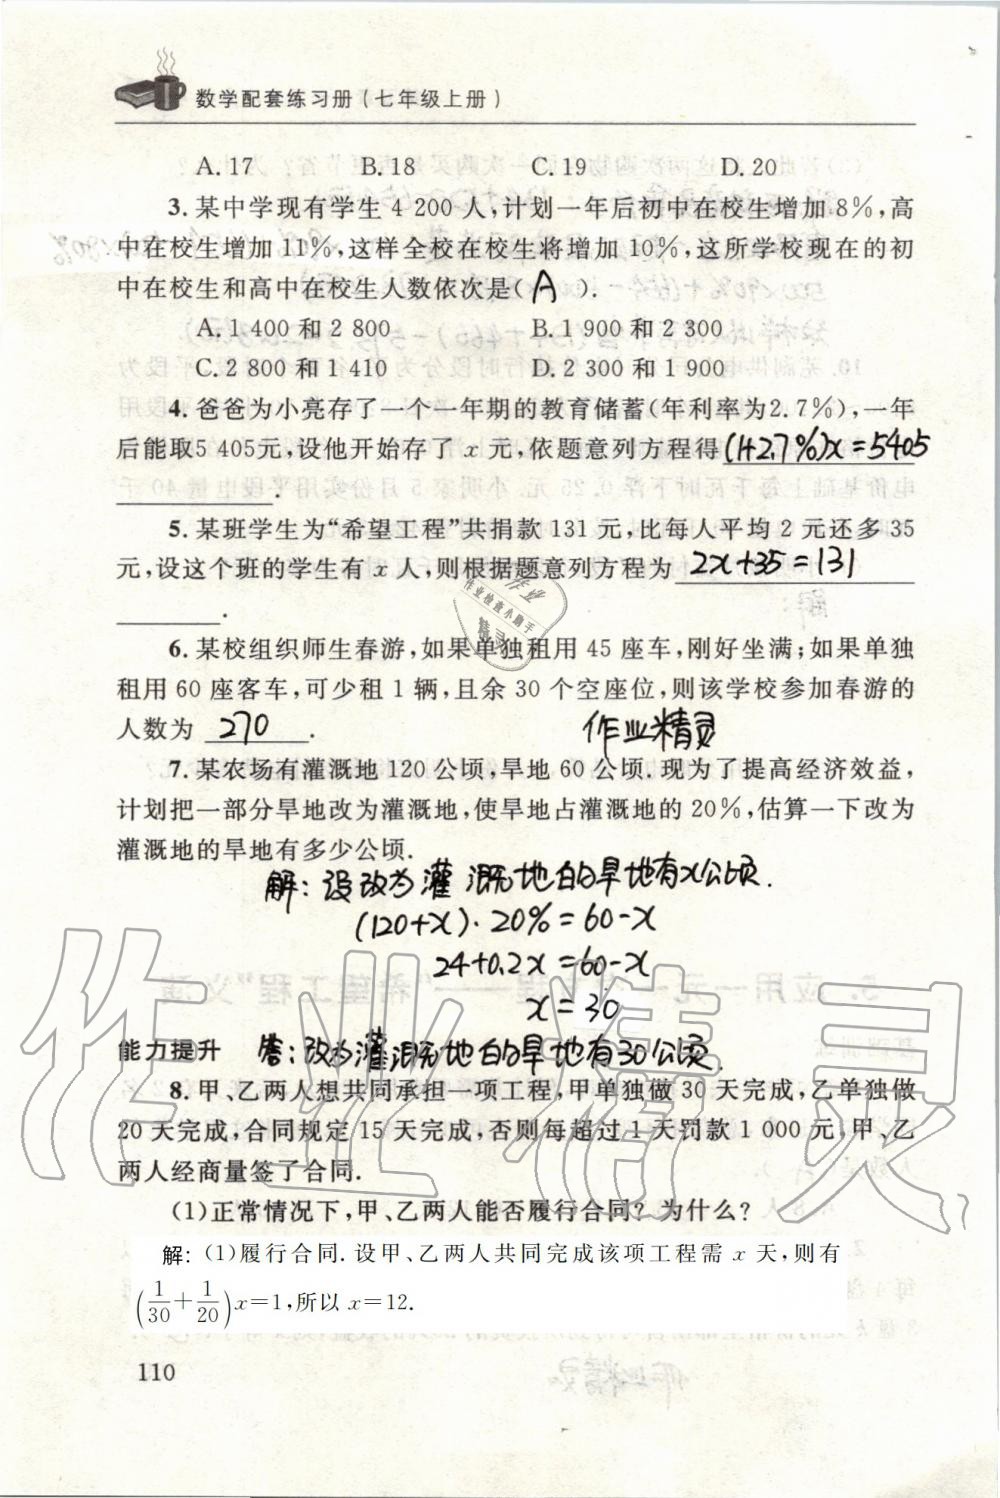 数学配套练习册(七年级上册)
A. 17 B. 18 C. 19 D. 20
3. 某中学现有学生 4 200 人,计划一年后初中在校生增加 8%,高
中在校生增加 11%,这样全校在校生将增加 10%,这所学校现在的初
中在校生和高中在校生人数依次是( A ).
A. 1 400 和 2 800 B. 1 900 和 2 300
C. 2 800 和 1 410 D. 2 300 和 1 900
4. 爸爸为小亮存了一个一年期的教育储蓄(年利率为2.7%),一年
后能取5 405元,设他开始存了 x 元,依题意列方程得 (1+2.7%)x=5405
.
5. 某班学生为“希望工程”共捐款 131 元,比每人平均 2 元还多 35
元,设这个班的学生有 x 人,则根据题意列方程为 2x+35=131
.
6. 某校组织师生春游,如果单独租用 45 座车,刚好坐满;如果单独
租用 60 座客车,可少租 1 辆,且余 30 个空座位,则该学校参加春游的
人数为 270 .
作业精灵
7. 某农场有灌溉地 120 公顷,旱地 60 公顷. 现为了提高经济效益,
计划把一部分旱地改为灌溉地,使旱地占灌溉地的 20%,估算一下改为
灌溉地的旱地有多少公顷.
解:设改为灌溉地的旱地有x公顷.
(120+x)·20%=60-x
24+0.2x=60-x
x=30
能力提升 答:改为灌溉地的旱地有30公顷.
8. 甲、乙两人想共同承担一项工程,甲单独做 30 天完成,乙单独做
20 天完成,合同规定 15 天完成,否则每超过 1 天罚款 1 000 元,甲、乙
两人经商量签了合同.
(1)正常情况下,甲、乙两人能否履行合同? 为什么?
解: (1)履行合同. 设甲、乙两人共同完成该项工程需 x 天,则有
(1/30+1/20)x=1,所以 x=12.
110
作业精灵